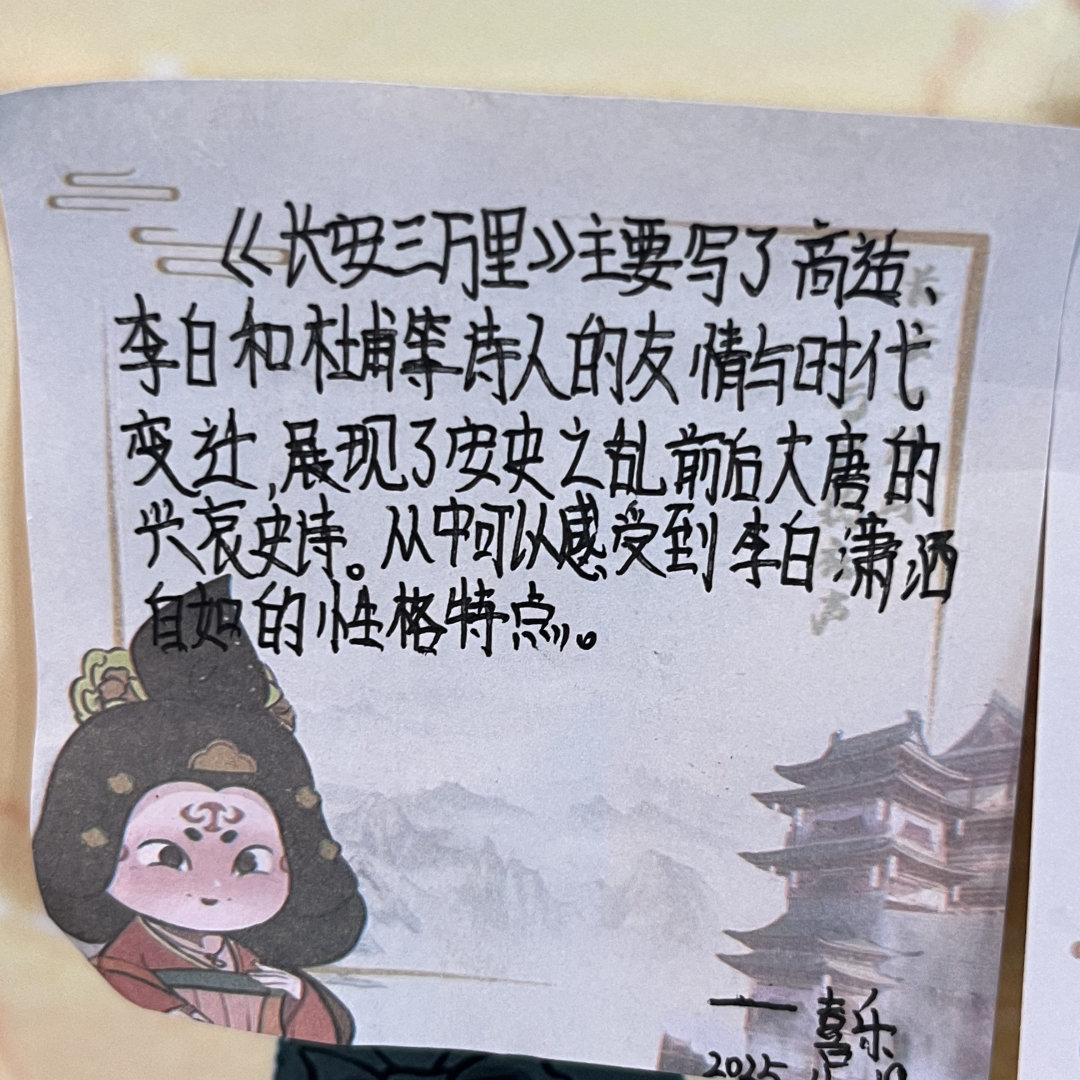 《长安三万里》主要写了高适、
李白和杜甫等诗人的友情与时代
变迁,展现了安史之乱前后大唐的
兴哀史诗。从中可以感受到李白潇洒
自如的性格特点。
——喜乐
2025